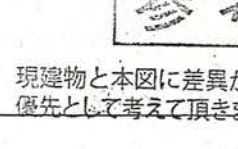 現建物と本図に差異が
優先として考えて頂きま